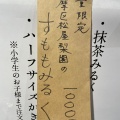 数量限定
摩巨松屋梨園の
すももみるく
1000
・抹茶みるく
・ハーフサイズか
※小学生の
お子様まで注